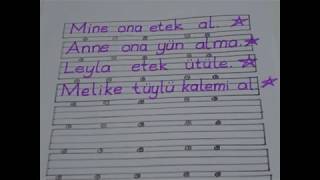 Mine ona etek al.
Anne ona yün alma.
Leyla etek ütüle.
Melike tüylü kalemi al.